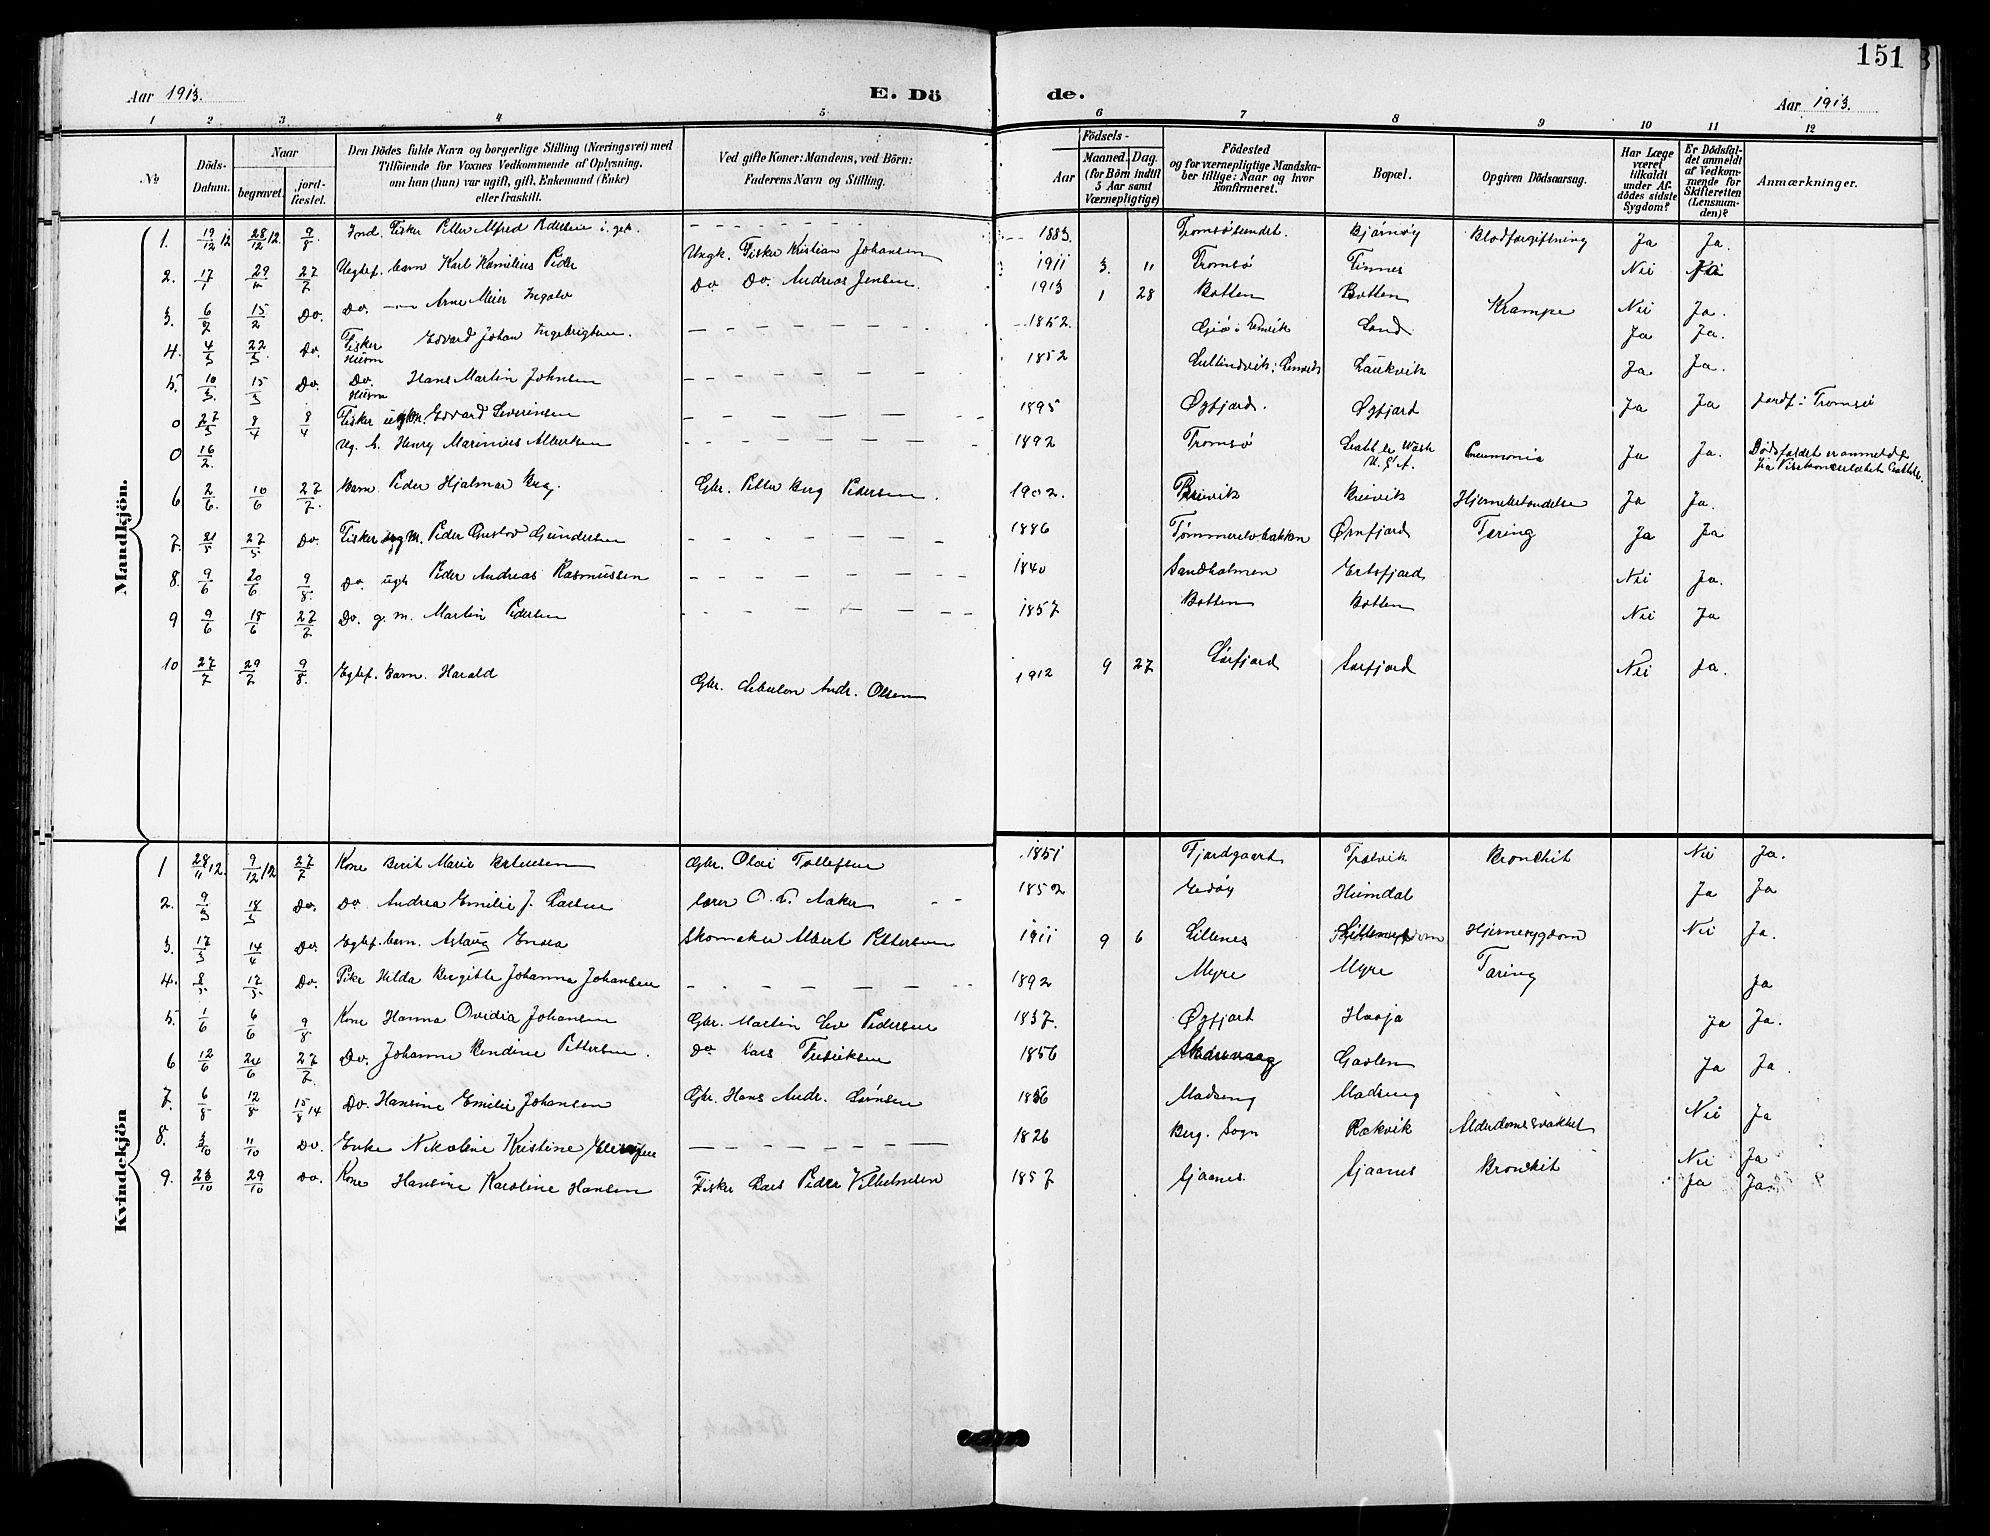 151
Aar 1913. E. Dö de. Aar 1913.
1 2 3 4 5 6 7 8 9 10 11 12
№ Döds-Datum. Naar begravet. jord-fæstet. Den Dödes fulde Navn og borgerlige Stilling (Næringsvei) med Tilföiende for Voxnes Vedkommende af Oplysning, om han (hun) var ugift, gift, Enkemand (Enke) eller fraskilt. Ved gifte Koner: Mandens, ved Börn: Faderens Navn og Stilling. Födsels- Aar Maaned. Dag. (for Börn indtil 5 Aar samt Værnepligtige) Födested og for værnepligtige Mandskaber tillige: Naar og hvor konfirmeret. Bopæl. Opgiven Dödsaarsag. Har Læge været tilkaldt under Afdödes sidste Sygdom? Er Dödsfaldet anmeldt af Vedkommende for Skifteretten (Lensmanden)? Anmærkninger.
Mandkjön.
1. 19/12 12 28/12 12. 9/8. Ind. Fisker Petter Alfred Pedersen - - - 1883. Tromsøsundet. Bjørnøy Blodforgiftning Ja Ja.
2. 17/1 29/ 27/7 Uegtef. barn Karl Kornilius Peder Ungk. Fisker Kristian Johansen 1911 3. 11 Tromsø Finnes Nei Ja
3. 6/2 15/2 Do. Do. — Arne Meier Ingolv Do Do. Andreas Jensen. 1913 1 28 Botten Botten Krampe Nei Ja.
4. 4/3 22/3. Do. Fisker Husm Edvard Johan Ingebrigtsen. — — — 1852. Giø i Lenvik Sand Ja Ja.
5. 10/3. 15/3 Do. Do. Husm Hans Martin Johnsen — — — 1852 Lenvik Laukvik Ja Ja.
0 27/3 8/4 8/4 Fisker ugkm. Edvard Severinsen — — — 1895 Øyfjord. Øyfjord Ja Ja jordf. i Tromsø
0 16/2. Ug. Henry Marinius Albertsen — — — 1892 Tromsø Seattle Wash U.S.A. Pneumonia Ja Ja. Dödsfaldet er anmeldt fra Vicekonsulatet Seattle.
6 2/6. 10/6 27/7. Barn Peder Hjalmar Berg. Gbr. Petter Berg Pedersen. 1902. Breivik Breivik Hjernebetændelse Ja Ja.
7. 21/5 27/5. Do. Fisker ugm. Peder Gustav Gundersen — — — 1886 Tømmerelvbakken Ørnfjord Tæring Ja Ja
8. 9/6 20/6 9/8. Do. ugk Peder Andreas Rasmussen — — — 1840 Sandholmen Ersfjord Nei Ja.
9 9/6 18/6 27/7 Do. g. m. Martin Pedersen — — — 1857 Botten Botten Nei Ja
10 27/7 29/7 9/8. Egtef. Barn. Harald Gbr. Sebulon Andr. Olsen 1912 9 27 Sørfjord Sørfjord Nei Ja.
Kvindekjön
1 28/11 12. 9/12 12 27/7 Kone Berit Marie Gbr. Olai Tollefsen 1851 Fjordgaard Trælvik Bronchit Nei Ja.
2. 9/3 18/3 Do. Do Andrea Emilie J. Larsen lærer O. L. Aaker - - 1852 Edøy Heimdal Ja Ja
3. 17/3 14/4 Do. Egtef. barn. Aslaug Ensea Skomaker Albert Pettersen 1911 9 6 Sillenes Hjernesygdom Nei Ja.
4. 8/5 17/5. Do. Pike Hilda Bergitte Johanna Johansen - - - 1892 Myre Myre Tæring Ja
5. 1/6 6/6 9/8 Kone Hanna Ovidia Johansen Gbr. Martin Lev Pedersen 1837. Øyfjord Haaja Ja Ja.
6 12/6 24/6 27/7. Do. Johanne Bendine Pettersen. Do Lars Fredriksen 1856 Gavlen Ja Ja.
7. 6/8 12/8 15/8 14 Do. Hansine Emilie Johansen Gbr. Hans Andr. Sørnsen 1856 Madseng Madseng Nei Ja
8. 3/10 11/10 Do. Enke Nikoline Kristine — — — 1826 Berg. Sogn Rækvik Alderdomssvakhet Nei Ja
9. 23/10 29/10 Do Kone Hansine Karoline Hansen Fisker Lars Peder Vilhelmsen 1857 Sjaanes. Sjaanes Bronchit Ja Ja.